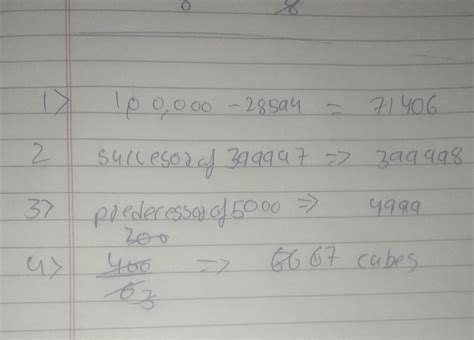 1> 100,000 - 28594 = 71406
2 succesor of 399997 => 399998
3> predecessor of 5000 => 4999
200
4> 400 => 6667 cubes
63